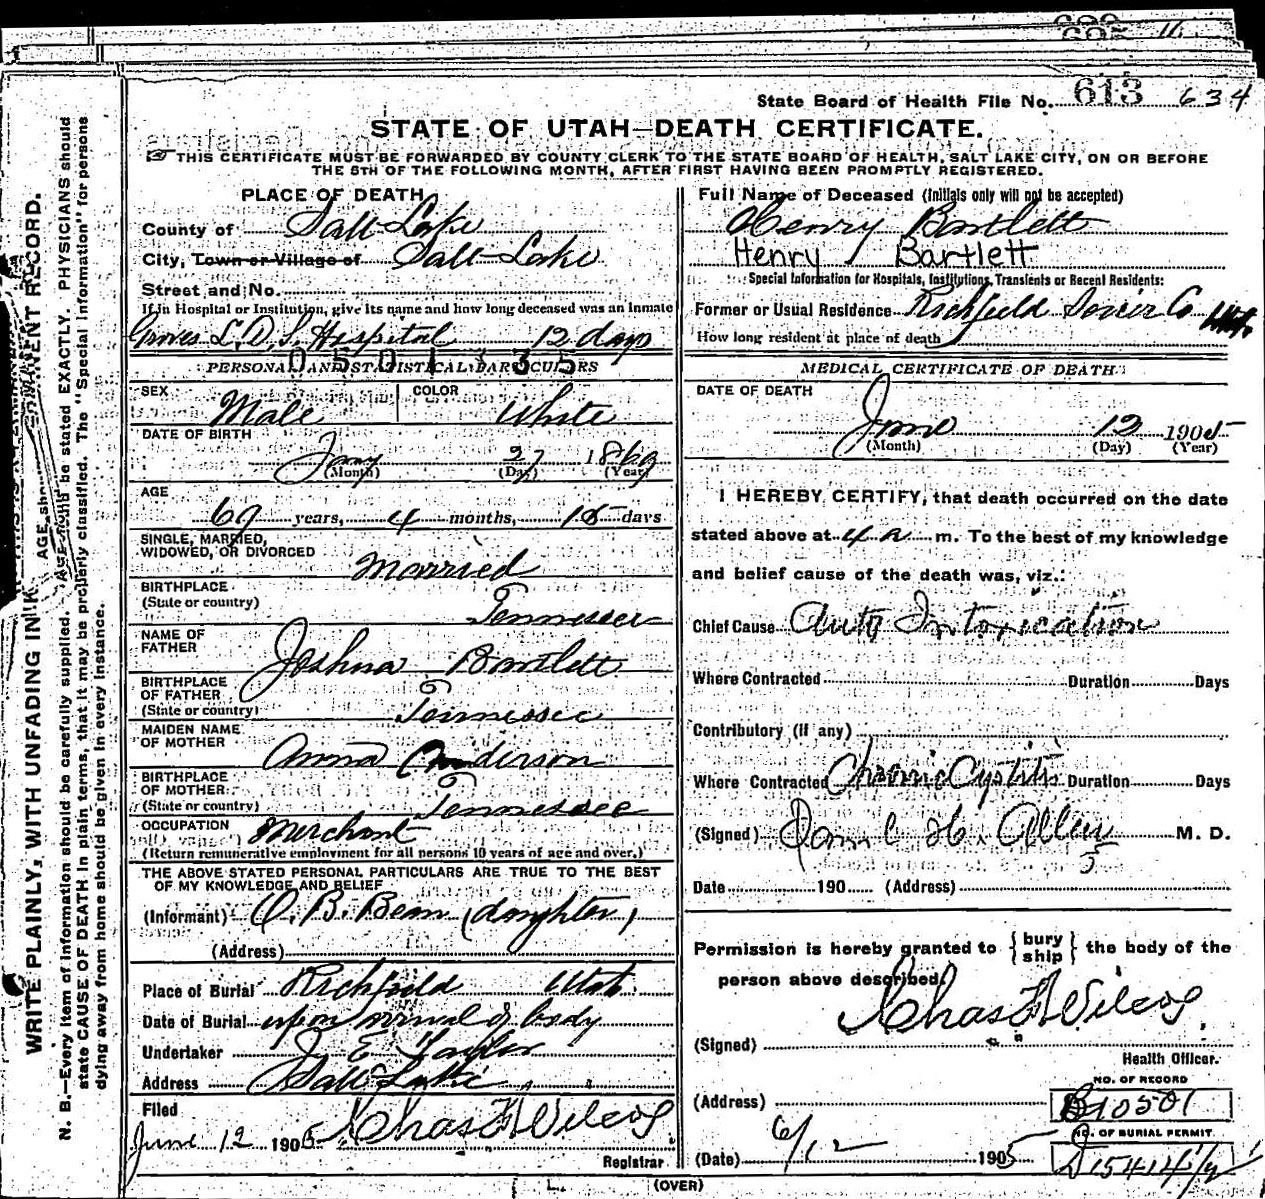 State Board of Health File No. 613 634
STATE OF UTAH—DEATH CERTIFICATE.
THIS CERTIFICATE MUST BE FORWARDED BY COUNTY CLERK TO THE STATE BOARD OF HEALTH, SALT LAKE CITY, ON OR BEFORE
THE 5TH OF THE FOLLOWING MONTH, AFTER FIRST HAVING BEEN PROMPTLY REGISTERED.
WRITE PLAINLY, WITH UNFADING INK
N. B.—Every item of information should be carefully supplied. AGE should be stated EXACTLY. PHYSICIANS should
state CAUSE OF DEATH in plain terms, that it may be properly classified. The "Special Information" for persons
dying away from home should be given in every instance.
PLACE OF DEATH
County of Salt Lake
City, Town or Village of Salt Lake
Street and No.
If in Hospital or Institution, give its name and how long deceased was an inmate
Groves L. D. S. Hospital 12 days
0501135
PERSONAL AND STATISTICAL PARTICULARS
SEX Male COLOR White
DATE OF BIRTH
Jany 27 18
(Month) (Day) (Year)
AGE
years, 4 months, 15 days
SINGLE, MARRIED,
WIDOWED, OR DIVORCED Married
BIRTHPLACE
(State or country) Tennessee
NAME OF
FATHER Joshua Bartlett
BIRTHPLACE
OF FATHER
(State or country) Tennessee
MAIDEN NAME
OF MOTHER Anna Anderson
BIRTHPLACE
OF MOTHER
(State or country) Tennessee
OCCUPATION Merchant
(Return remunerative employment for all persons 10 years of age and over.)
THE ABOVE STATED PERSONAL PARTICULARS ARE TRUE TO THE BEST
OF MY KNOWLEDGE AND BELIEF
(Informant) O. B. Bean (daughter)
(Address)
Place of Burial Richfield Utah
Date of Burial upon arrival of body
Undertaker J. E. Taylor
Address Salt Lake
Filed
June 12 1905 Chas F Wilcox
Registrar
Full Name of Deceased (Initials only will not be accepted)
Henry Bartlett
Henry Bartlett
Special Information for Hospitals, Institutions, Transients or Recent Residents:
Former or Usual Residence Richfield Sevier Co Ut.
How long resident at place of death
MEDICAL CERTIFICATE OF DEATH
DATE OF DEATH
June 12 1905
(Month) (Day) (Year)
I HEREBY CERTIFY, that death occurred on the date
stated above at 4 a m. To the best of my knowledge
and belief cause of the death was, viz.:
Chief Cause Auto Intoxication
Where Contracted Duration Days
Contributory (if any)
Where Contracted Chronic Cystitis Duration Days
(Signed) H. Allen M. D.
Date 190 (Address) 5
Permission is hereby granted to { bury ship } the body of the
person above described.
(Signed) Chas F Wilcox
Health Officer.
(Address)
NO. OF RECORD
B10501
NO. OF BURIAL PERMIT
(Date) 6/12 1905
(OVER)